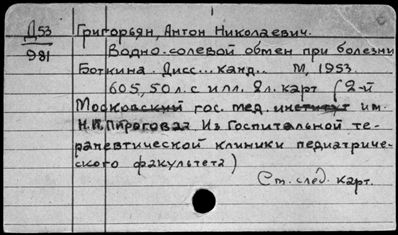 Д53
981
Григорьян, Антон Николаевич.
Водно-солевой обмен при болезни
Боткина. Дисс... канд.. М, 1953.
605, 50 л. с илл. 2л. карт (2-й
Московский гос. мед. институт им.
Н.И. Пирогова Из Госпитальной те-
рапевтической клиники педиатриче-
ского факультета)
См. след. карт.